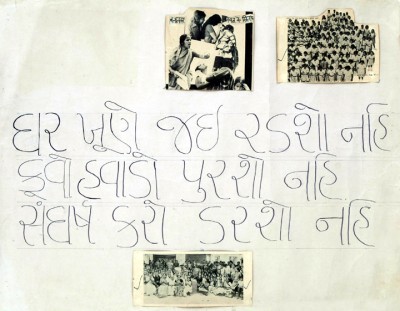 ઘર ખૂણે જઇ રડશો નહિ
કૂવો હવાડો પુરશો નહિ
સંઘર્ષ કરો ડરશો નહિ